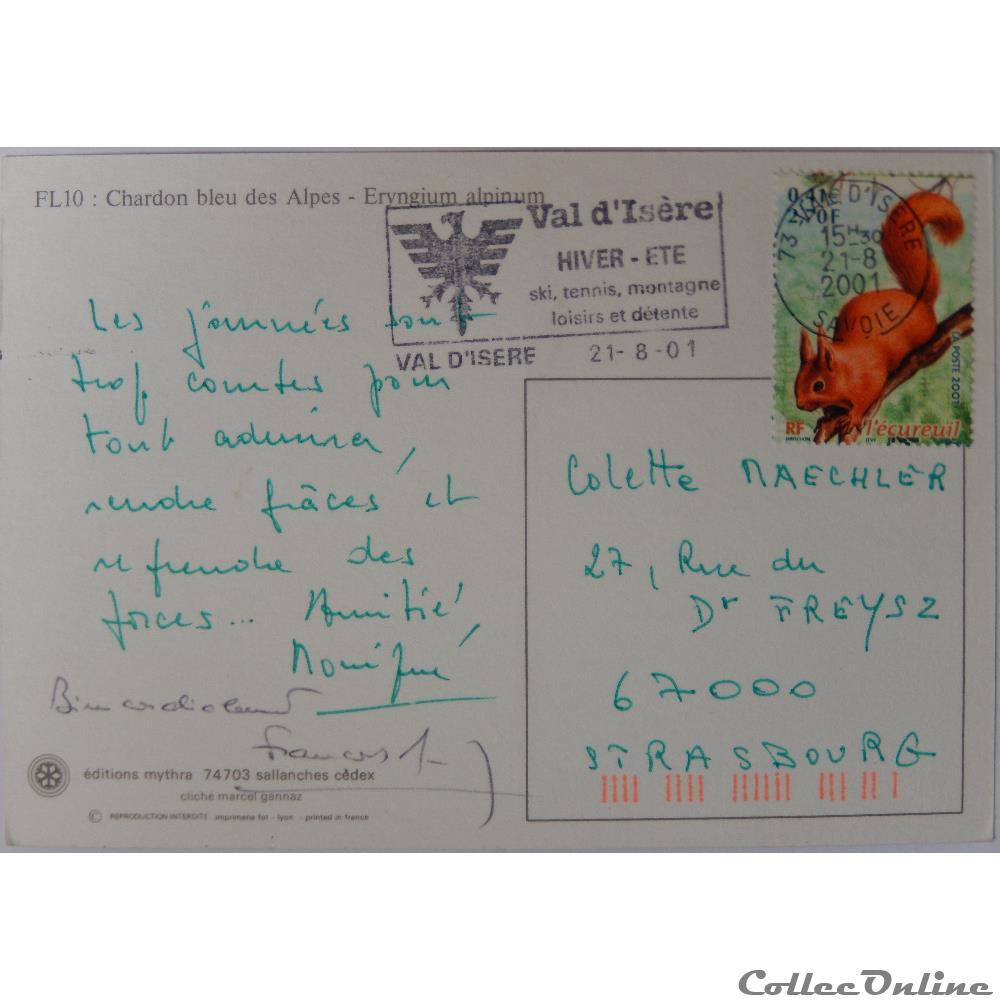 FL10 : Chardon bleu des Alpes - Eryngium alpinum
Val d'Isère
HIVER - ETE
ski, tennis, montagne
loisirs et détente
VAL D'ISERE 21-8-01
2,70F
73 VAL D'ISERE
15H30
21-8
2001
SAVOIE
LA POSTE 2001
RF l'écureuil
Les journées sont
trop courtes pour
tout admirer,
rendre grâces et
reprendre des
forces... Amitié,
Monique
Bien cordialement
Colette MAECHLER
27, Rue du
Dr FREYSZ
67000
STRASBOURG
éditions mythra 74703 sallanches cédex
cliché marcel gannaz
© REPRODUCTION INTERDITE imprimerie fot - lyon - printed in france
CollecOnline